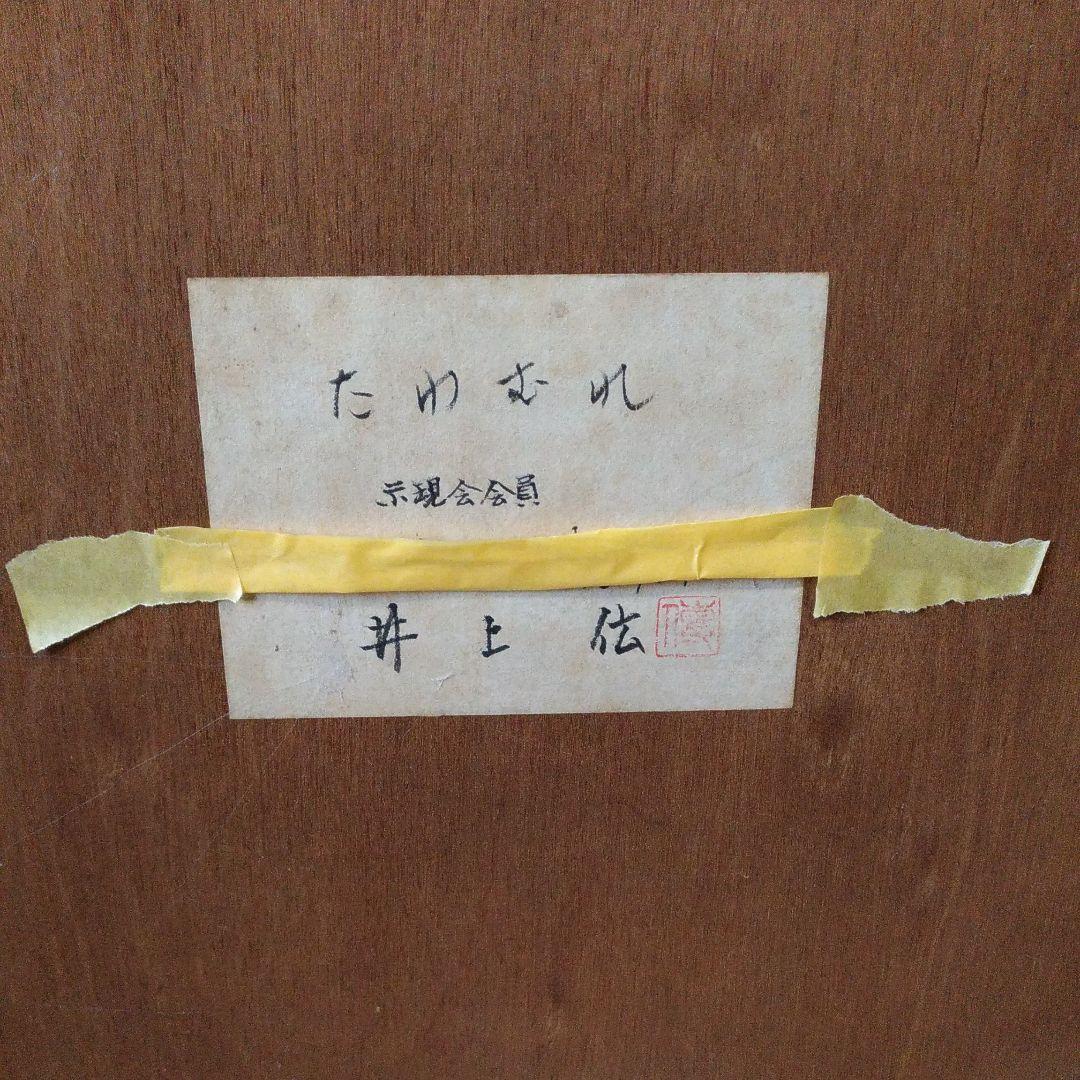 たわむれ
示現会会員
井上 伝
傳